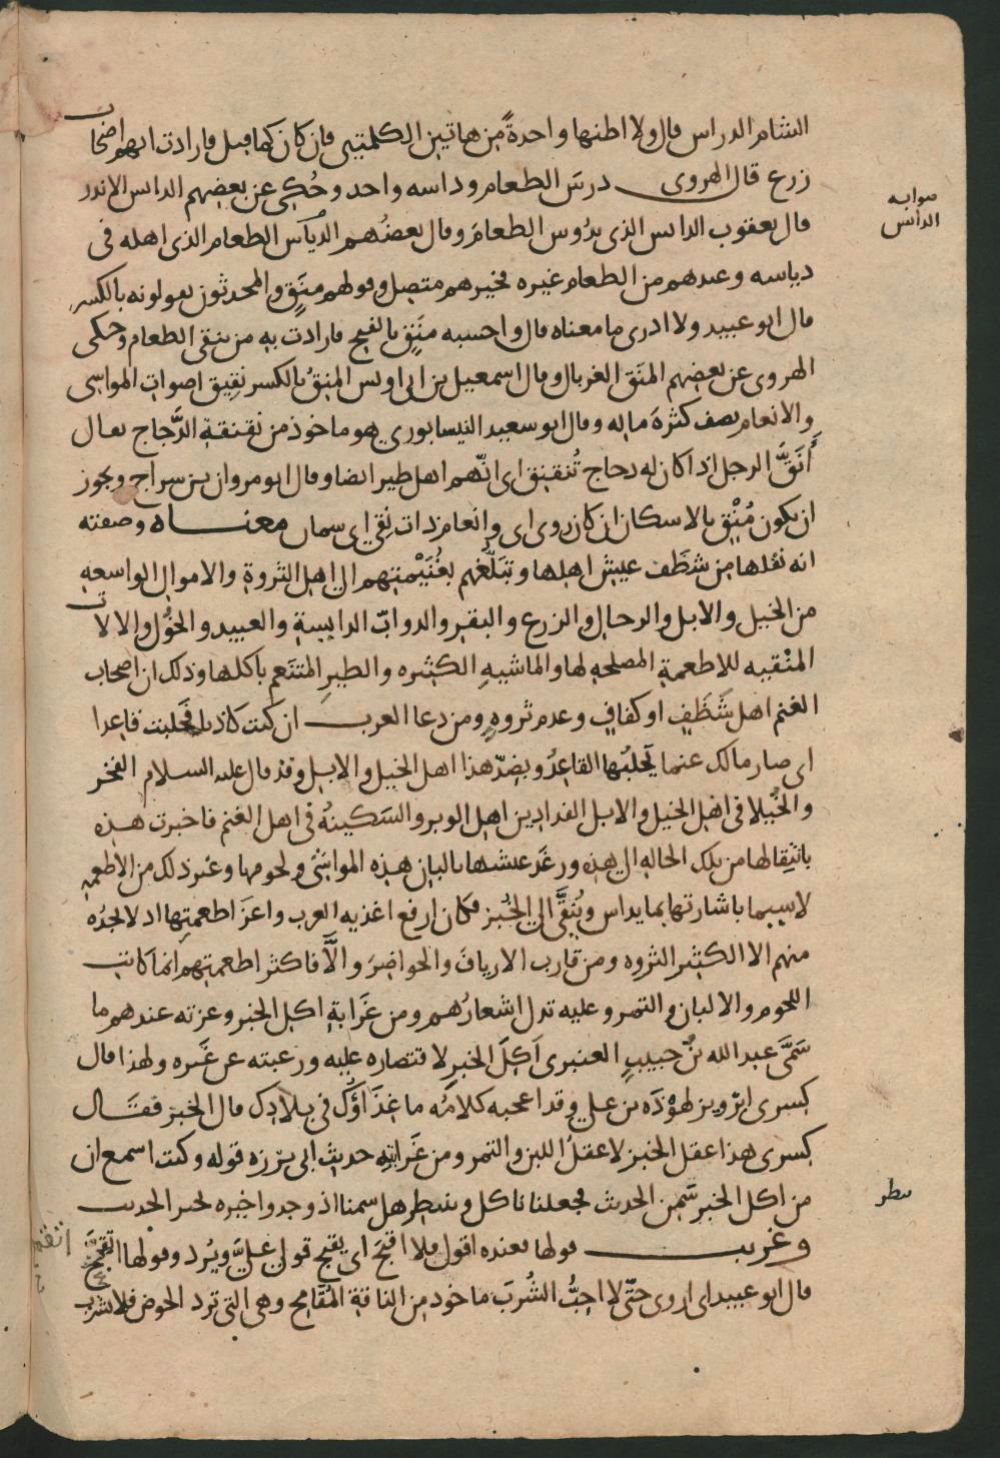 الشام الدراس قال ولا اظنها واحدةً من هاتين الكلمتين فان كان كما قيل فارادت انهم اصحاب
زرع قال الهروى درسَ الطعام وداسه واحد وحُكى عن بعضهم الدائس الاندر
قال يعقوب الدائس الذى يدُوس الطعامَ وقال بعضُهم الديَاس الطعام الذى اهله فى
دياسه وعندهم من الطعام غيره فخيرهم متصل وقولهم منَقٍ والمحدثون يقولونه بالكسر
قال ابو عبيد ولا ادرى ما معناه قال واحسبه منَقٍ بالفتح فارادت به من ينقى الطعام وحكى
الهروى عن بعضهم المنَقِ الغربال وقال اسمعيل بن ابى اويس المنِقُ بالكسر نقيق اصوات المواشى
والانعام تصف كثرة ماله وقال ابو سعيد النيسابورى هو ماخوذ من نقنقة الدَّجاج يقال
أَنَقَّ الرجل اذا كان له دجاج تُنقنق اى انّهم اهل طير ايضا وقال ابو مروان بن سراج ويجوز
ان يكون مُنْقٍ بالاسكان ان كان روى اى وانعام ذات نِقي اى سمان معنـــاه وصفته
انه نقلها من شظَف عيش اهلها وتبَلّغهم بغُنَيْمتهم الى اهل الثروة والاموال الواسعه
من الخيل والابل والرحال والزرع والبقر والدوابّ الدايسة والعبيد والخوَل والالات
المنْقيه للاطعمةِ المصلحه لها والماشيهِ الكثيره والطيرِ المتنَعم باكلها وذلك ان اصحاب
الغنم اهل شَظَفٍ او كفافٍ وعدم ثروهٍ ومن دعا العرب ان كنت كاذبا فحَلبتَ قاعدا
اى صار مالك غنما يَحلبُها القاعدُ وبضدّ هذا اهل الخيل والابل وقد قال عليه السلام الفخر
والخُيلا فى اهل الخيل والابل الفدادين اهل الوبر والسَكينهُ فى اهل الغنم فاخبرت هـذه
بانتِقالها من تلك الحاله الى هذه ورغَد عيشها بالبان هـذه المواشى ولحومها وغير ذلك من الاطعمه
لاسيما باشارتها بما يداس ويُنقَّى الى الخُبز فكان ارفع اغذيه العرب واعزَ اطعمتِها اذ لا يجدُه
منهم الا الكثير الثروه ومن قارب الاريافَ والحواضِرَ والَّا فاكثر اطعمتِهم انما كانت
اللحوم والالبان والتمر وعليه تدل اشعارُهم ومن غَرابةِ اكل الخبز وعزته عندهم ما
سَمَّى عبد الله بنُ حبيبٍ العنبرى آكِلَ الخبزِ لاقتصاره عليه ورغبته عن غَيره ولهذا قال
كِسرى ابرْويز لهوْذَه بن علي وقد اعجبه كلامُه ما غذَاؤك فى بلادك قال الخبز فقـال
كِسرى هذا عقل الخبز لا عقلُ اللبن والتمر ومن غَرابتِه حديث ابى برزه قوله وكنت اسمع ان
من اكل الخبز سَمِن الحديث فجعلنا ناكل وننظر هل سمنا اذ وجدوا خبزه لخبر الحديث
وغريب قولها فعنده اقول فلا اقبَّح اى يقبح قولى علىَّ ويُردُ وقولها اتقمَّح
قال ابو عبيد اى اروى حتّى لا احبُّ الشُربَ ماخوذ من الناقة المُقَامِح وهى التى ترد الحوض فلا تشرب
صوابه
الدائس
ننظر